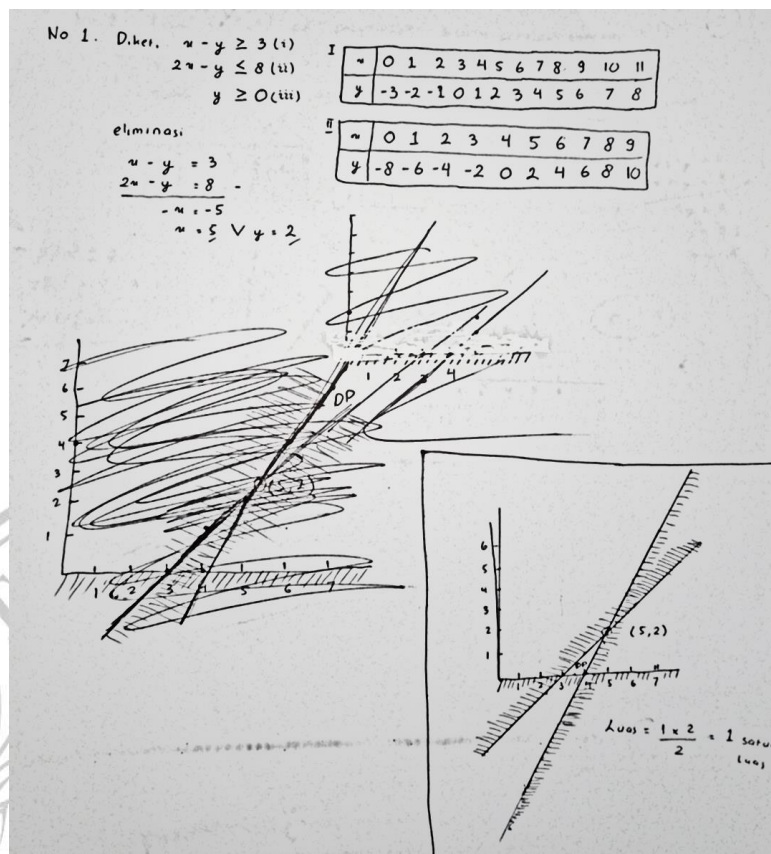 No 1. Diket. x - y ≥ 3 (i)
2x - y ≤ 8 (ii)
y ≥ 0 (iii)
I
x 0 1 2 3 4 5 6 7 8 9 10 11
y -3 -2 -1 0 1 2 3 4 5 6 7 8
II
x 0 1 2 3 4 5 6 7 8 9
y -8 -6 -4 -2 0 2 4 6 8 10
eliminasi
x - y = 3
2x - y = 8 -
-x = -5
x = 5 V y = 2
1 2 3 4
DP
7
6
5
4
3
2
1
(5,2)
1 2 3 4 5 6 7
6
5
4
3
2
1
(5,2)
DP
1 2 3 4 5 6 7
Luas = 1 x 2 / 2 = 1 satu
luas